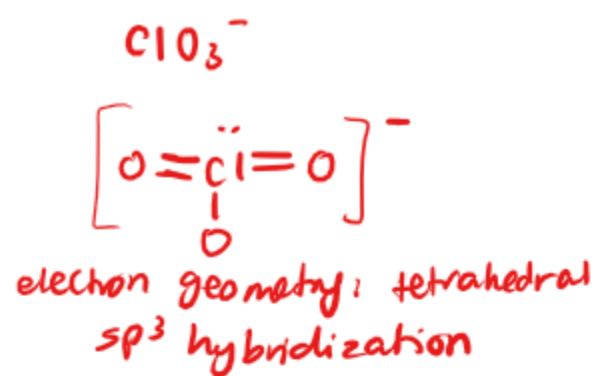 ClO₃⁻
[O=C̈l=O]⁻
|
O
electron geometry: tetrahedral
sp³ hybridization